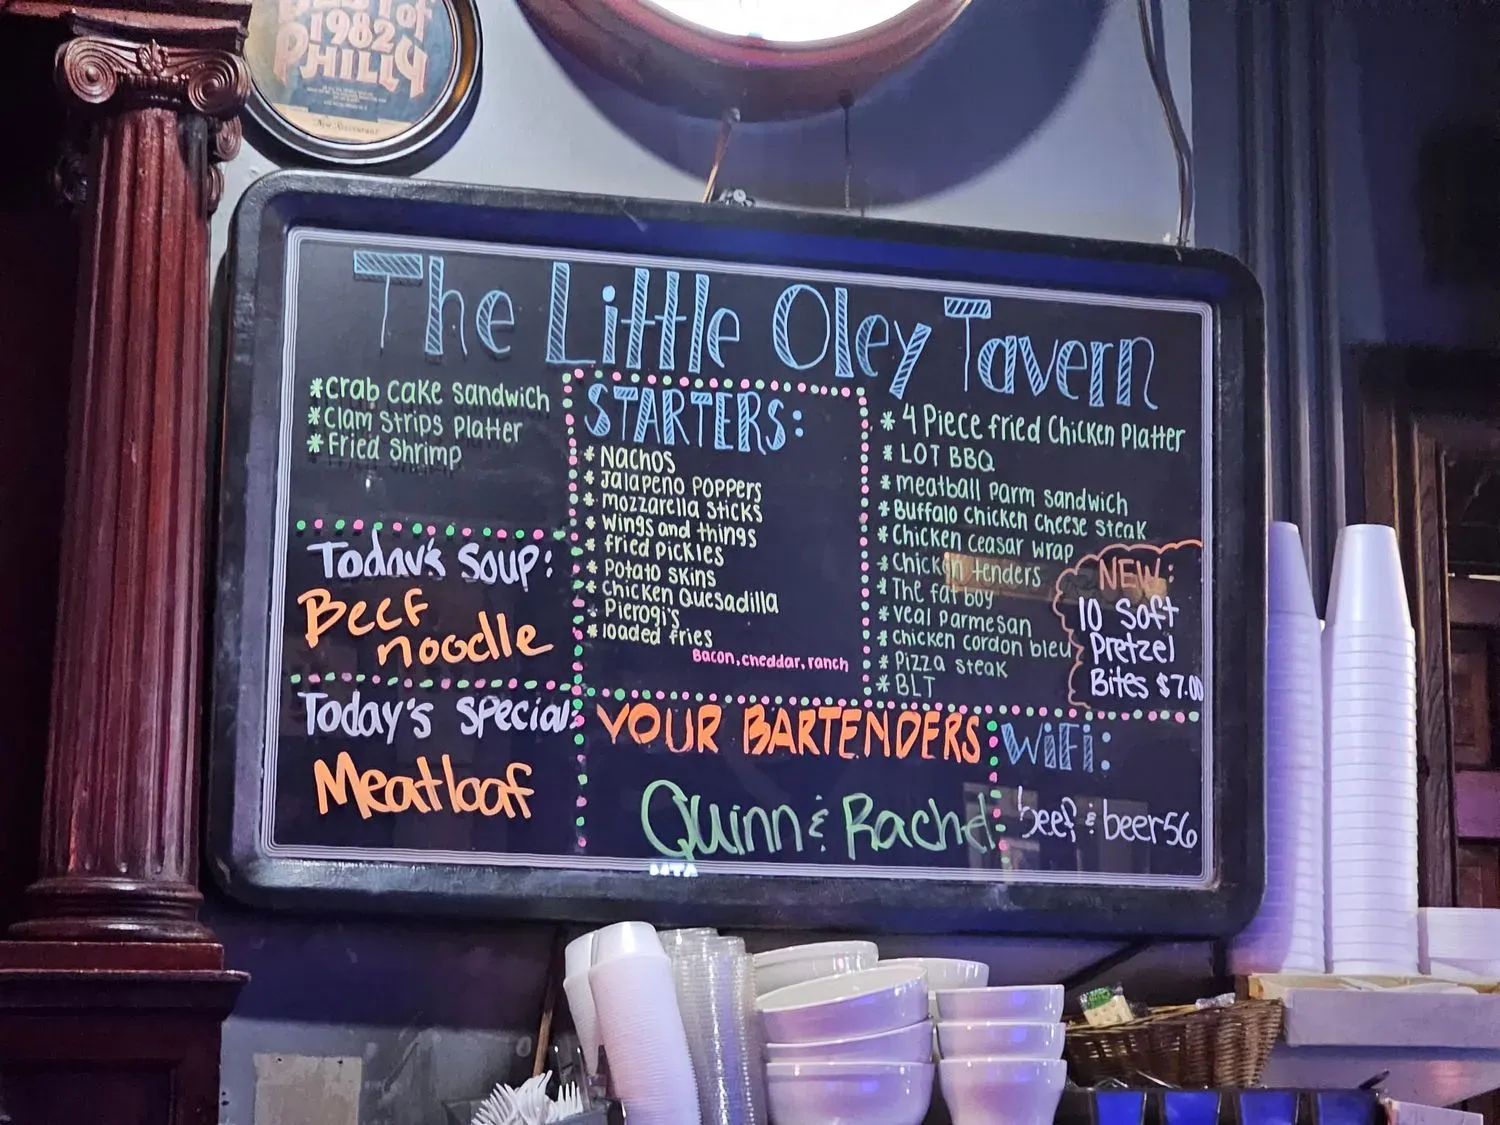 BEST of
1982
PHILLY
New Restaurant
The Little Oley Tavern
*Crab cake sandwich
*Clam Strips Platter
*Fried Shrimp
Today's Soup:
Beef
noodle
Today's Special:
Meatloaf
STARTERS:
* Nachos
* Jalapeno Poppers
* Mozzarella Sticks
* Wings and things
* fried pickles
* Potato Skins
* Chicken Quesadilla
* Pierogi's
* loaded fries
Bacon, cheddar, ranch
* 4 Piece fried Chicken Platter
* LOT BBQ
* meatball Parm sandwich
* Buffalo Chicken Cheese steak
* Chicken Ceasar wrap
* Chicken tenders
* The fat boy
* veal Parmesan
* chicken cordon bleu
* Pizza steak
* BLT
NEW:
10 Soft
Pretzel
Bites $7.00
YOUR BARTENDERS
Quinn & Rachel
WiFi:
beef & beer56